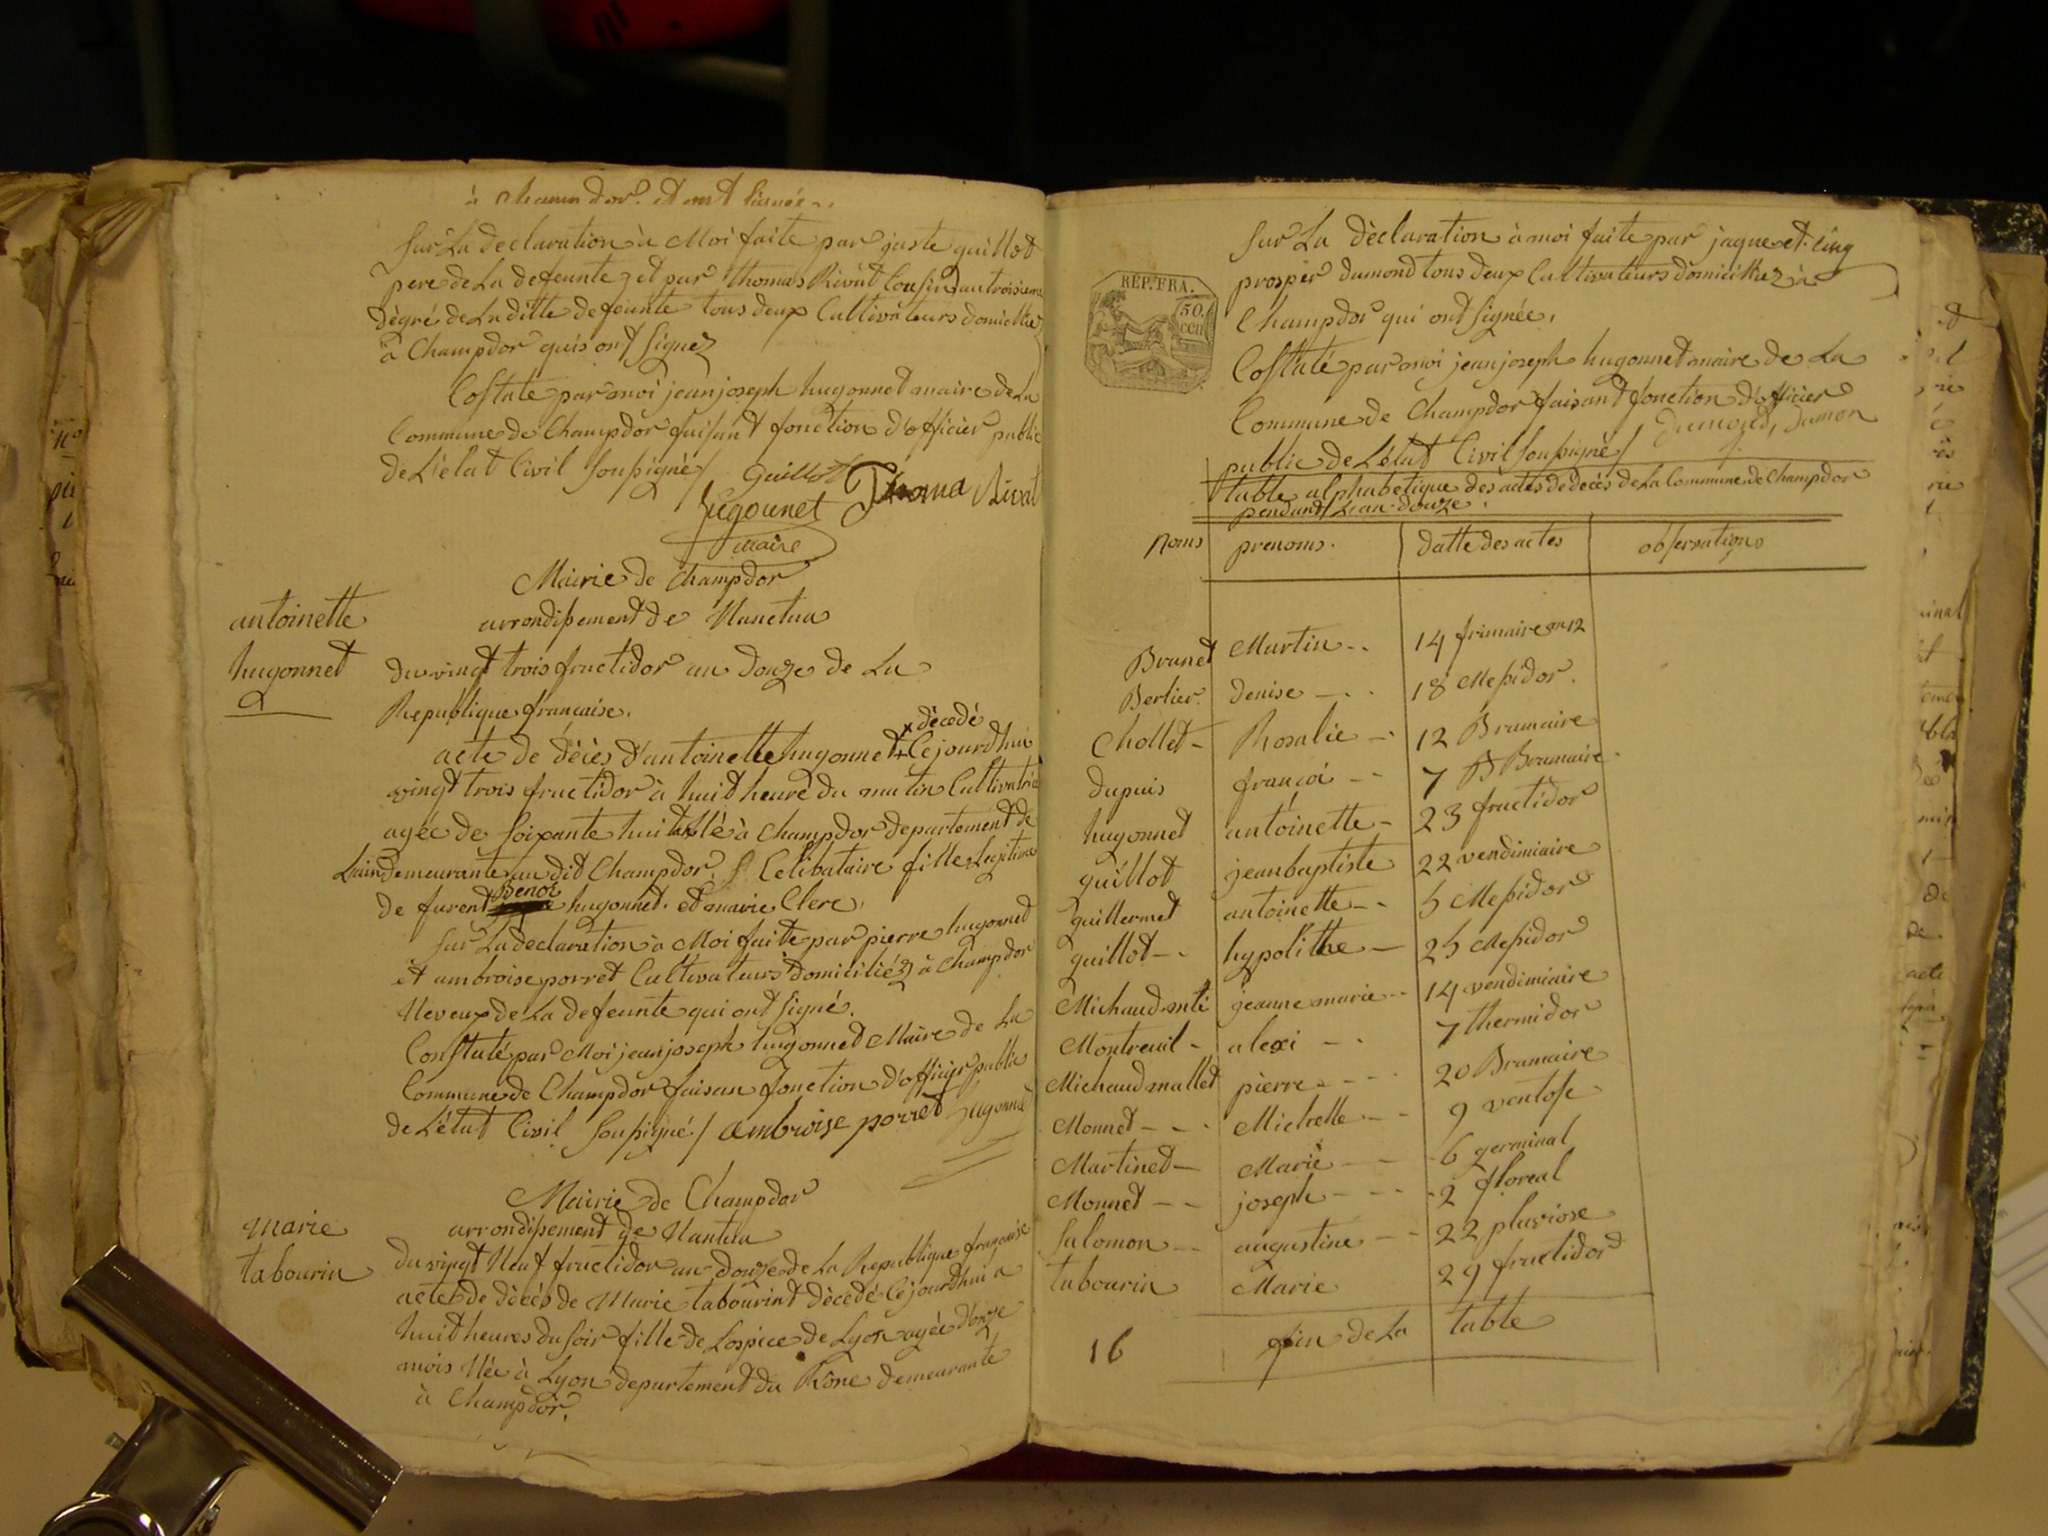 à Champdor. et ont signés..
sur La declaration à Moi faite par juste guillot
pere de La defeunte et par thomas Rivat Cousin au troisieme
dègré de La ditte defeunte tous deux Cultivateurs domicilliez
à Champdor quis ont signez
Costaté par moi jean joseph hugonnet maire de La
Commune de Champdor faisant fonction d'officier public
de L'état Civil soussigné/ guillot
hugonnet Thoma Rivat
maire
Mairie de Champdor
arrondissement de Nanctua
antoinette
hugonnet
du vingt trois fructidor an douze de La
Republique française.
décédé
acte de décès d'antoinette hugonnet Cejourdhui
vingt trois fructidor à huit heure du matin Cultivatrice
agée de soixante huit née à Champdor departement de
Lain demeurante au dit Champdor, Celibataire fille Legitime
Benoi
de furent hugonnet et marie Clerc.
sur La declaration à Moi faite par pierre hugonnet
et ambroise porret Cultivateurs domiciliéz à Champdor
Neveux de La defeunte qui ont signé.
Constaté par Moi jean joseph hugonnet Maire de La
Commune de Champdor faisan fonction d'officier public
de L'état Civil soussigné/ ambroise porret hugonnet
Mairie de Champdor
arrondissement de Nantua
marie
tabourin
du vingt Neuf fructidor an douze de La Republique française
acte de décés de Marie tabourint décédé Cejourdhui a
huit heures du soir fille de Lospice de Lyon agée d'onze
mois Née à Lyon departement du Rône demeurante
à Champdor.
sur La déclaration à moi faite par jaque et
prosper dumond tous deux Cultivateurs domicilliez à
Champdor qui ont signée.
REP. FRA.
50.
cen
Costaté par moi jean joseph hugonnet maire de La
Commune de Champdor faisant fonction d'officier
public de L'état Civil soussigné/ dumond, dumon
table alphabetique des actes de decés de La Commune de Champdor
pendant L'an douze.
Noms prenoms. datte des actes observations
Brunet Martin.. 14 frimaire an 12
Berlier. denise -.. 18 Messidor.
Chollet- Rosalie -. 12 Brumaire
dupuis françoi -- 7 Brumaire.
hugonnet antoinette- 23 fructidor
guillot jean baptiste 22 vendimiaire
guillermet antoinette-- 5 Messidor
guillot-. hypolithe- 25 Messidor
Michaud anti jeanne marie-. 14 vendimiaire
Montreuil- alexi -. 7 thermidor
Michaud mallet pierre--.. 20 Brumaire
Monnet--. Michelle-- 9 ventose
Martinet- Marie -- 6 germinal
Monnet-- joseph--- 2 floreal
Salomon-- augustine-- 22 pluviose
tabourin Marie 29 fructidor
16 fin de La table